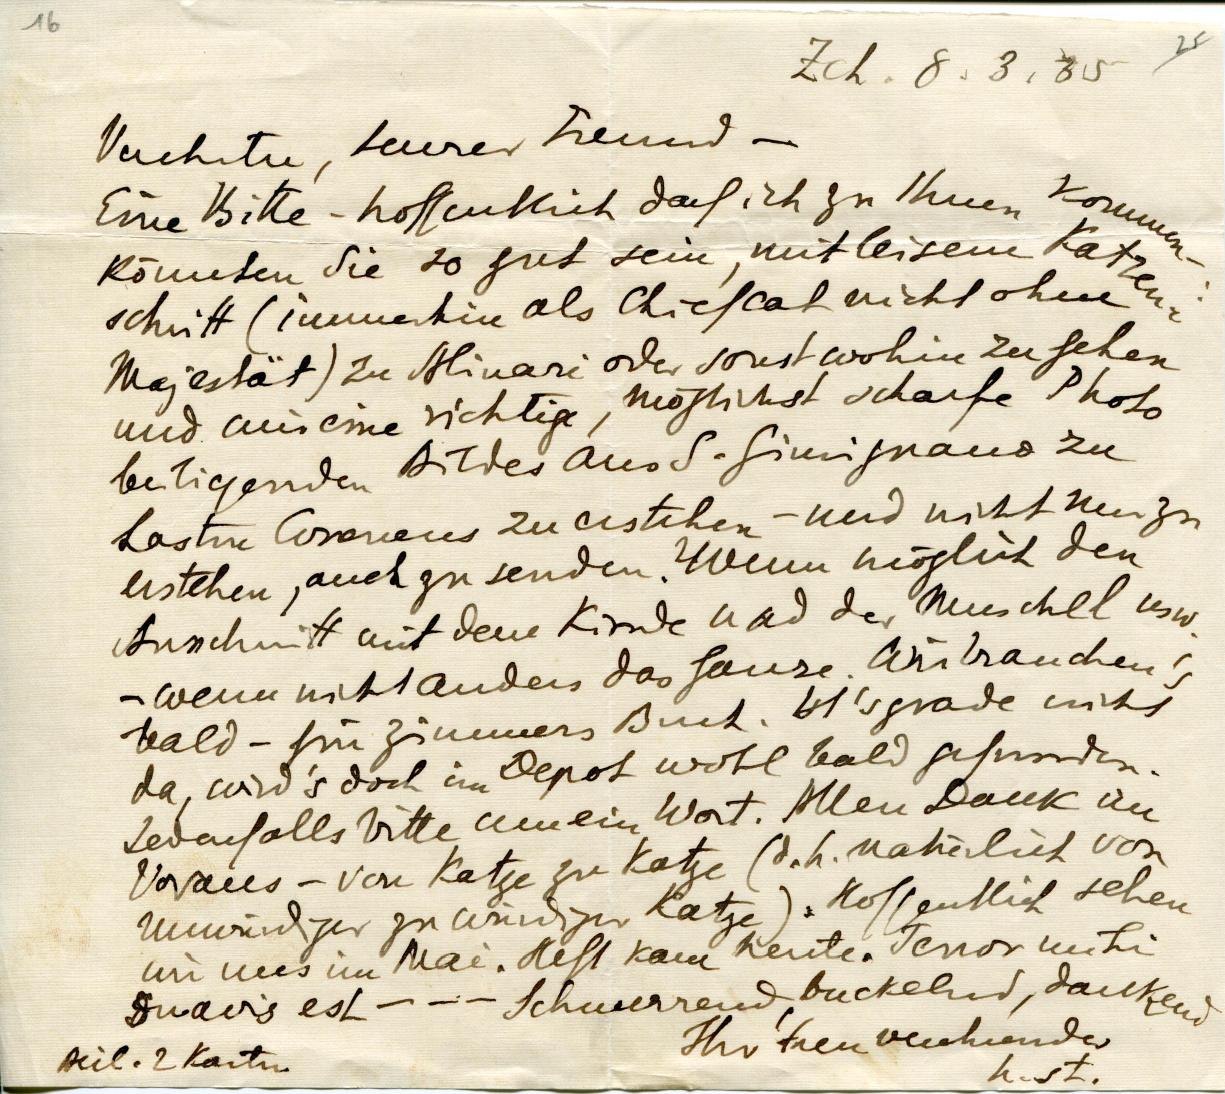 16
25
Zch. 8. 3. 35
Verehrter, teurer Freund –
Eine Bitte – hoffentlich darf ich zu Ihnen kommen –:
Könnten Sie so gut sein, mit leisem Katzen-
schritt (immerhin als Chiefcat nicht ohne
Majestät) zu Alinari oder sonst wohin zu gehen
und mir eine richtige, möglichst scharfe Photo
beiligenden Bildes aus S. Gimignano zu
Lasten Coronens zu erstehen – und nicht nur zu
erstehen, auch zu senden. Wenn möglich den
Ausschnitt mit dem Kinde und der Muschel usw.
– wenn nicht anders das Ganze. Wir brauchen's
bald – für Zimmers Buch. Ist's grade nicht
da, wird's doch im Depot wohl bald gefunden.
Jedenfalls bitte um ein Wort. Allen Dank im
Voraus – von Katze zu Katze (d.h. natürlich von
unwürdiger zu würdiger Katze). Hoffentlich sehen
wir uns im Mai. Heft kam heute. Terror mihi
suavis est – – – Schnurrend, buckelnd, dankend
Ihr treu verehrender
h. st.
Beil. 2 Karten